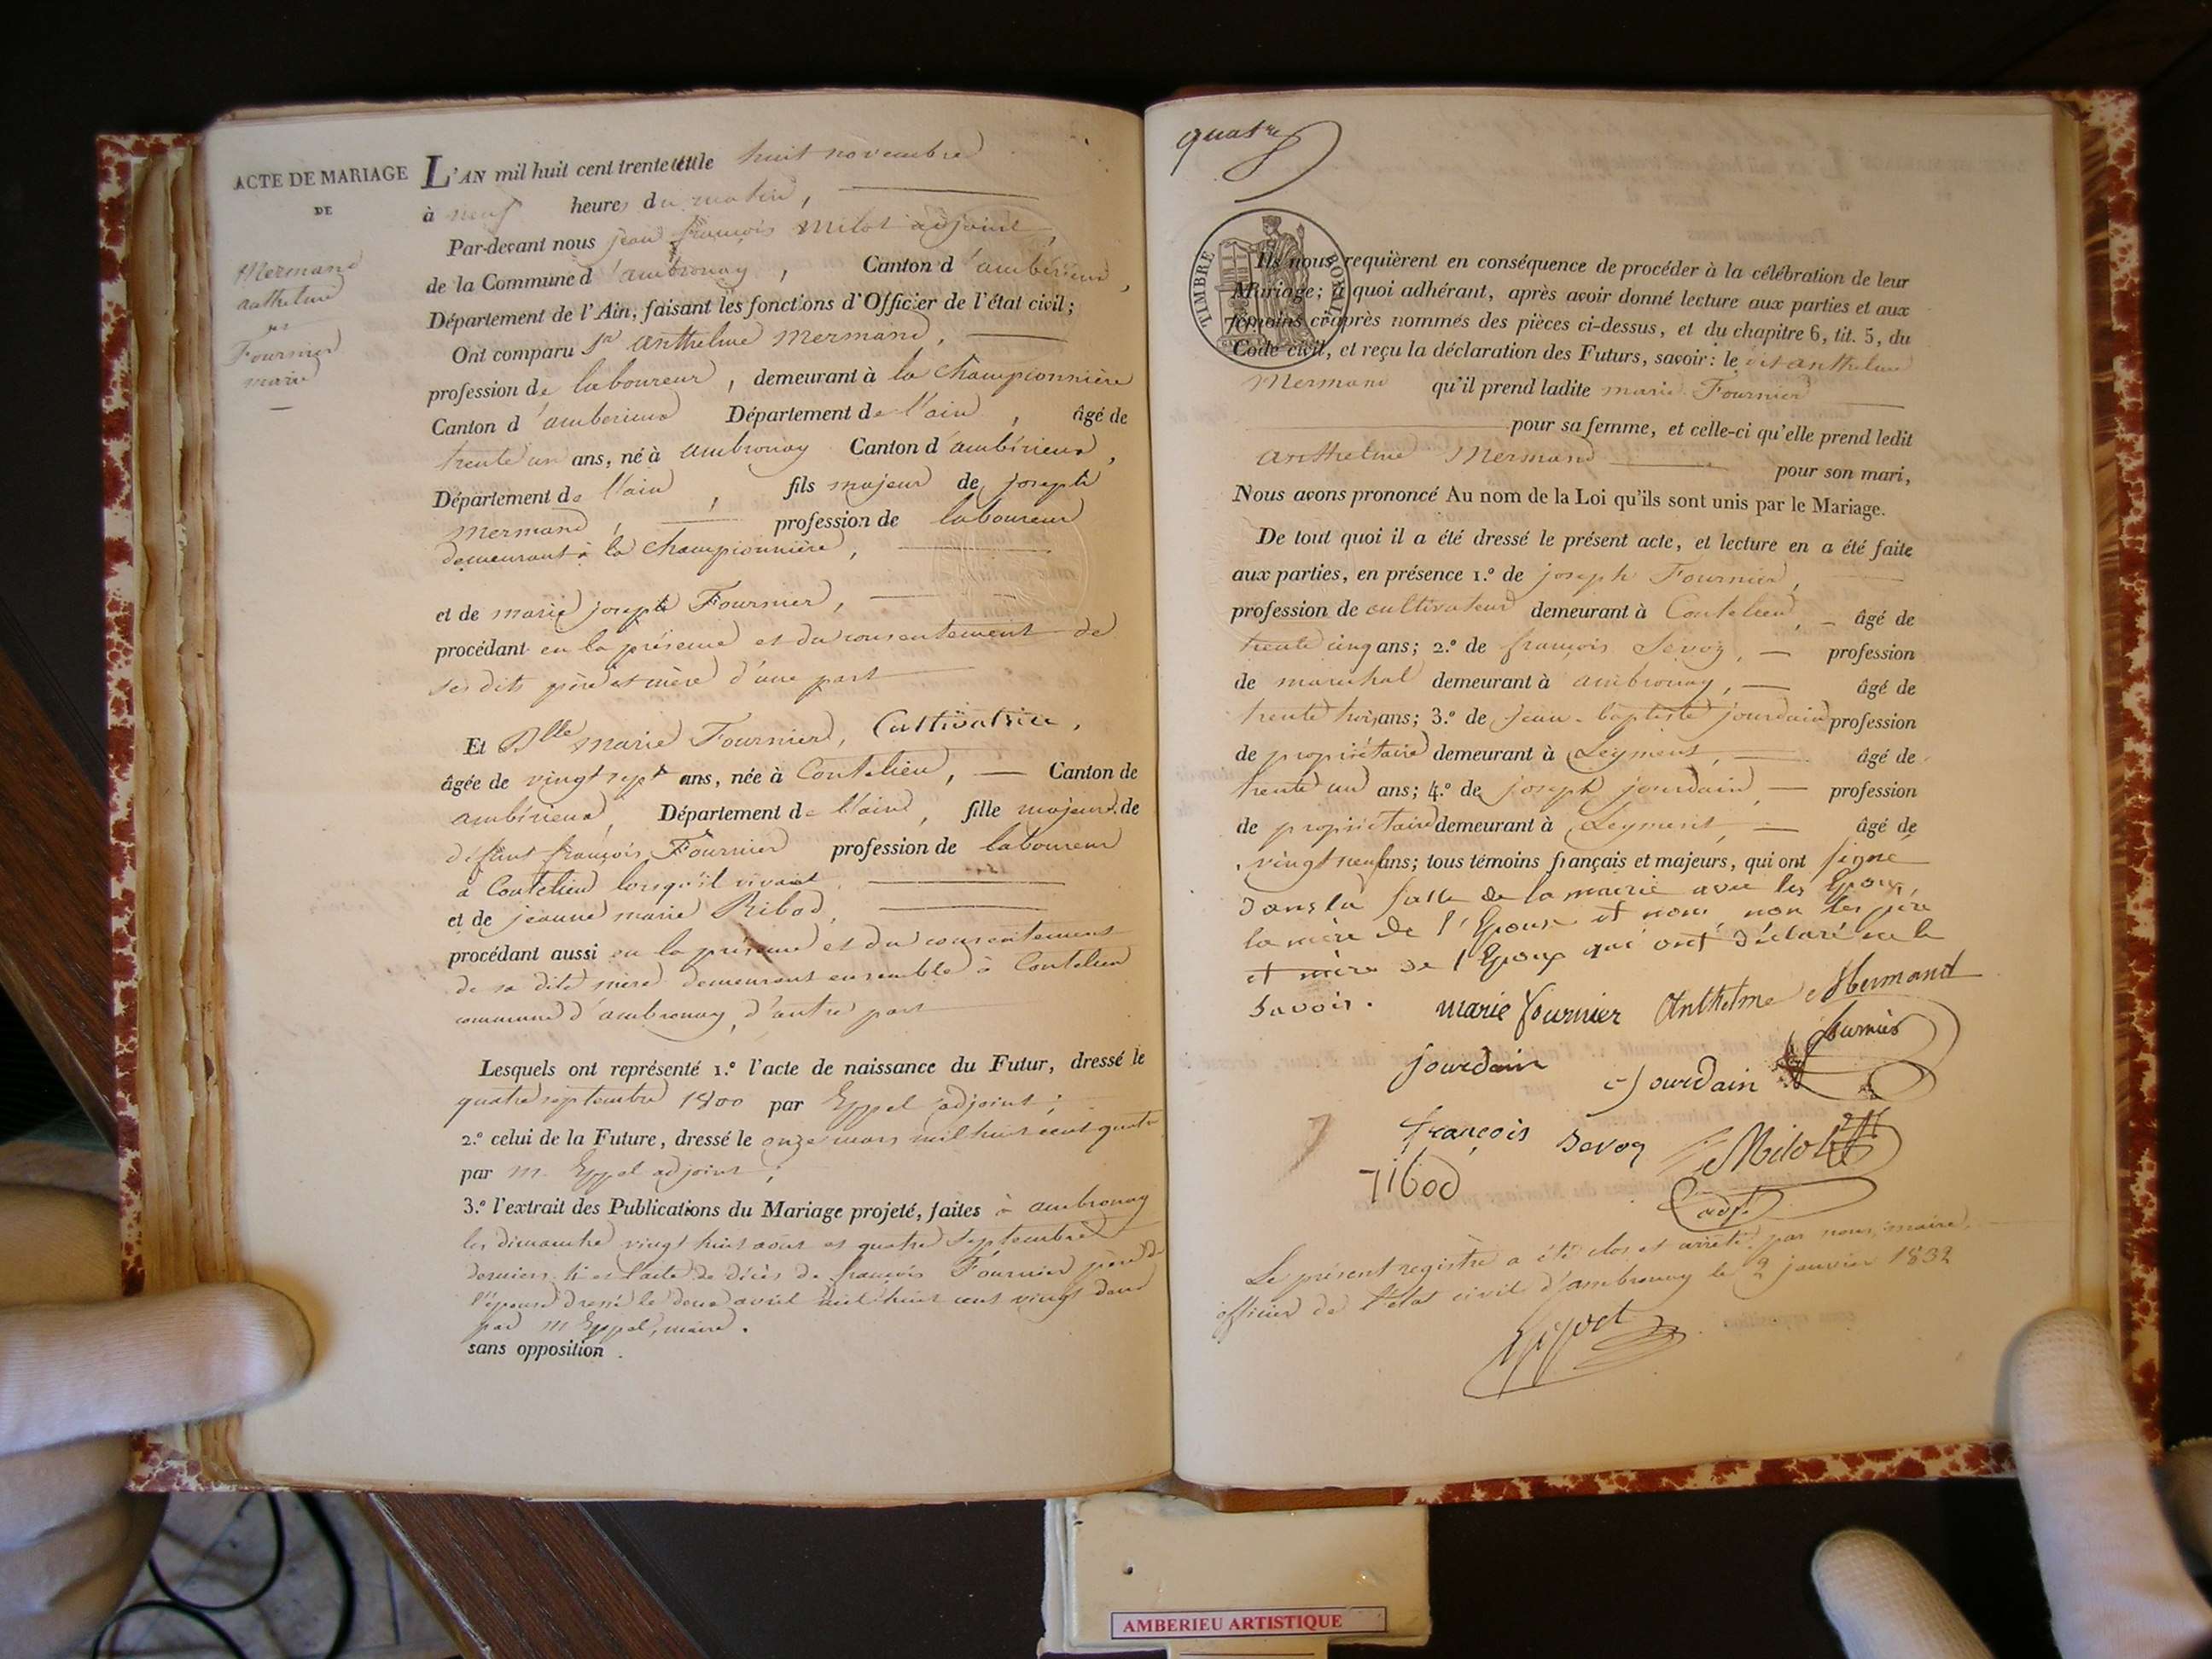 ACTE DE MARIAGE
DE
Mermand
anthelme
et
Fournier
marie
L'AN mil huit cent trente le huit novembre
à neuf heures du matin,
Par-devant nous jean françois Milot adjoint,
de la Commune d'ambronay, Canton d'ambérieux,
Département de l'Ain, faisant les fonctions d'Officier de l'état civil;
Ont comparu Sr anthelme Mermand,
profession de laboureur, demeurant à la Championnière
Canton d'amberieux Département de l'ain, âgé de
trente un ans, né à ambronay Canton d'ambérieux,
Département de l'ain, fils majeur de joseph
Mermand, profession de laboureur
demeurant à la Championnière,
et de marie joseph Fournier,
procédant en la présence et du consentement de
ses dits père et mère d'une part
Et Dlle Marie Fournier, Cultivatrice,
âgée de vingt sept ans, née à Coutelieu, Canton de
ambérieux, Département de l'ain, fille majeure de
défunt françois Fournier profession de laboureur
à Coutelieu lorsqu'il vivait
et de jeanne marie Ribod,
procédant aussi en la présence et du consentement
de sa dite mère demeurant ensemble à Coutelieu
commune d'ambronay, d'autre part
Lesquels ont représenté 1.° l'acte de naissance du Futur, dressé le
quatre septembre 1800 par Eppel adjoint;
2.° celui de la Future, dressé le onze mars mil huit cent quatre
par m. Eppel adjoint;
3.° l'extrait des Publications du Mariage projeté, faites à ambronay
les dimanche vingt huit août et quatre Septembre
derniers et l'acte de décès de françois Fournier père de
l'épouse dressé le deux avril mil huit cent vingt deux
par m Eppel, maire.
sans opposition.
quatre
TIMBRE ROYAL
Ils nous requièrent en conséquence de procéder à la célébration de leur
Mariage; à quoi adhérant, après avoir donné lecture aux parties et aux
témoins ci-après nommés des pièces ci-dessus, et du chapitre 6, tit. 5, du
Code civil, et reçu la déclaration des Futurs, savoir: le dit anthelme
Mermand qu'il prend ladite marie Fournier
pour sa femme, et celle-ci qu'elle prend ledit
anthelme Mermand pour son mari,
Nous avons prononcé Au nom de la Loi qu'ils sont unis par le Mariage.
De tout quoi il a été dressé le présent acte, et lecture en a été faite
aux parties, en présence 1.° de joseph Fournier,
profession de cultivateur demeurant à Coutelieu, âgé de
trente cinq ans; 2.° de françois Sevoz, profession
de marechal demeurant à ambronay, âgé de
trente trois ans; 3.° de jean-baptiste jourdain profession
de propriétaire demeurant à Leyment, âgé de
trente un ans; 4.° de joseph jourdain, profession
de propriétaire demeurant à Leyment, âgé de
vingt neuf ans; tous témoins français et majeurs, qui ont signé
dans la salle de la mairie avec les Epoux,
la mère de l'Epouse et nous, non les père
et mère de l'Epoux qui ont déclaré ne le
savoir. marie fournier Anthelme Mermand
fournier
jourdain Jourdain
françois Sevoz Milot
ribod adjt
Le présent registre a été clos et arrêté par nous, maire,
officier de l'état civil d'ambronay le 2 janvier 1832
AMBERIEU ARTISTIQUE